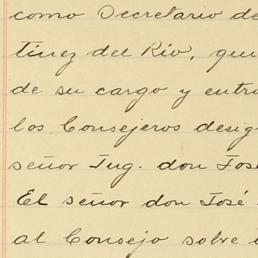 como Secretario de
tínez del Río, qui
de su cargo y entr
los Consejeros desig
señor Ing. don José
El señor don José
al Consejo sobre